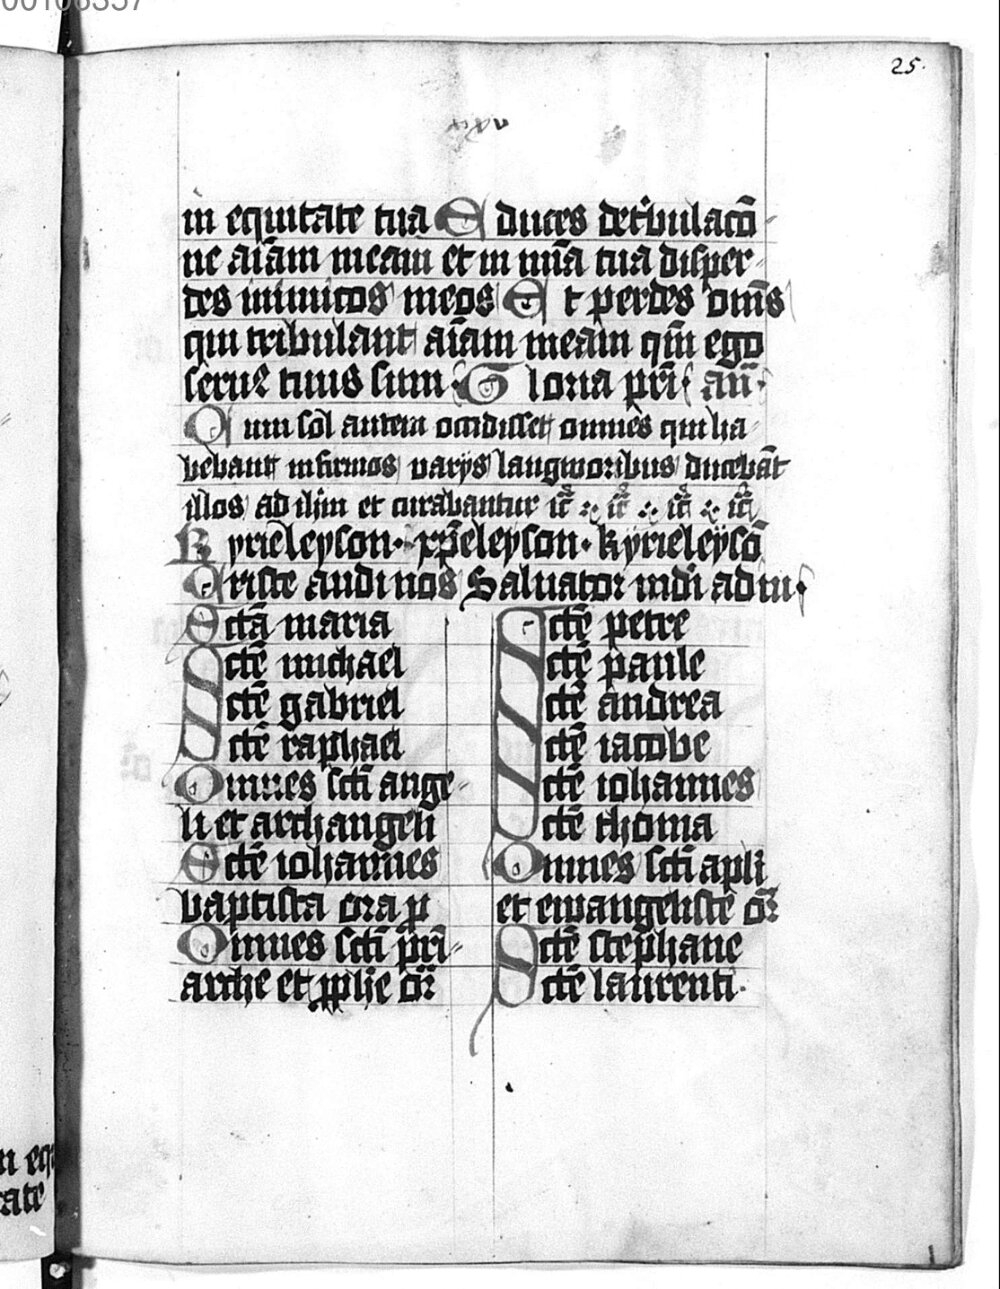 25.
xxv
in equitate tua Educes detribulacō
ne aīam meam et in mīa tua disper
des inimicos meos Et perdes om̄s
qui tribulant aīam meam qm̄ ego
seruꝰ tuus sum Gloria pr̄i añ
Cum sōl autem occidisset omnes qui ha
bebant infirmos varijs langworibus ducebāt
illos ad ihm et curabantur
Kyrieleyson · xp̄eleyson · kyrieleysō
Criste audi nos Saluator mdi adiu
Sctā maria
Sctē michael
Sctē gabriel
Sctē raphael
Omnes sctī ange
li et archangeli
Sctē iohannes
baptista ora p
Omnes sctī pr̄i
arche et pphe or̄
Sctē petre
Sctē paule
Sctē andrea
Sctē iacobe
Sctē iohannes
Sctē thoma
Omnes sctī apli
et ewangeliste or̄
Sctē stephane
Sctē laurenti